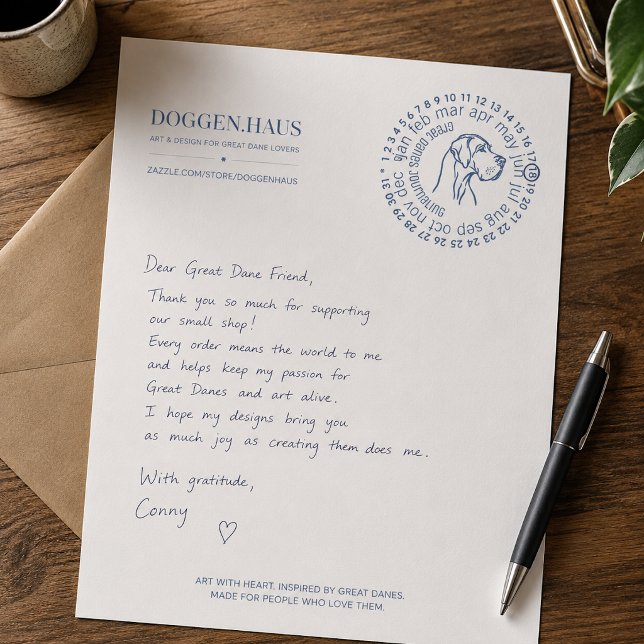 DOGGEN.HAUS
ART & DESIGN FOR GREAT DANE LOVERS
ZAZZLE.COM/STORE/DOGGENHAUS
* 1 2 3 4 5 6 7 8 9 10 11 12 13 14 15 16 17 18 19 20 21 22 23 24 25 26 27 28 29 30 31
jan feb mar apr may jun jul aug sep oct nov dec
great danes journaling
Dear Great Dane Friend,
Thank you so much for supporting
our small shop!
Every order means the world to me
and helps keep my passion for
Great Danes and art alive.
I hope my designs bring you
as much joy as creating them does me.
With gratitude,
Conny
ART WITH HEART. INSPIRED BY GREAT DANES.
MADE FOR PEOPLE WHO LOVE THEM.